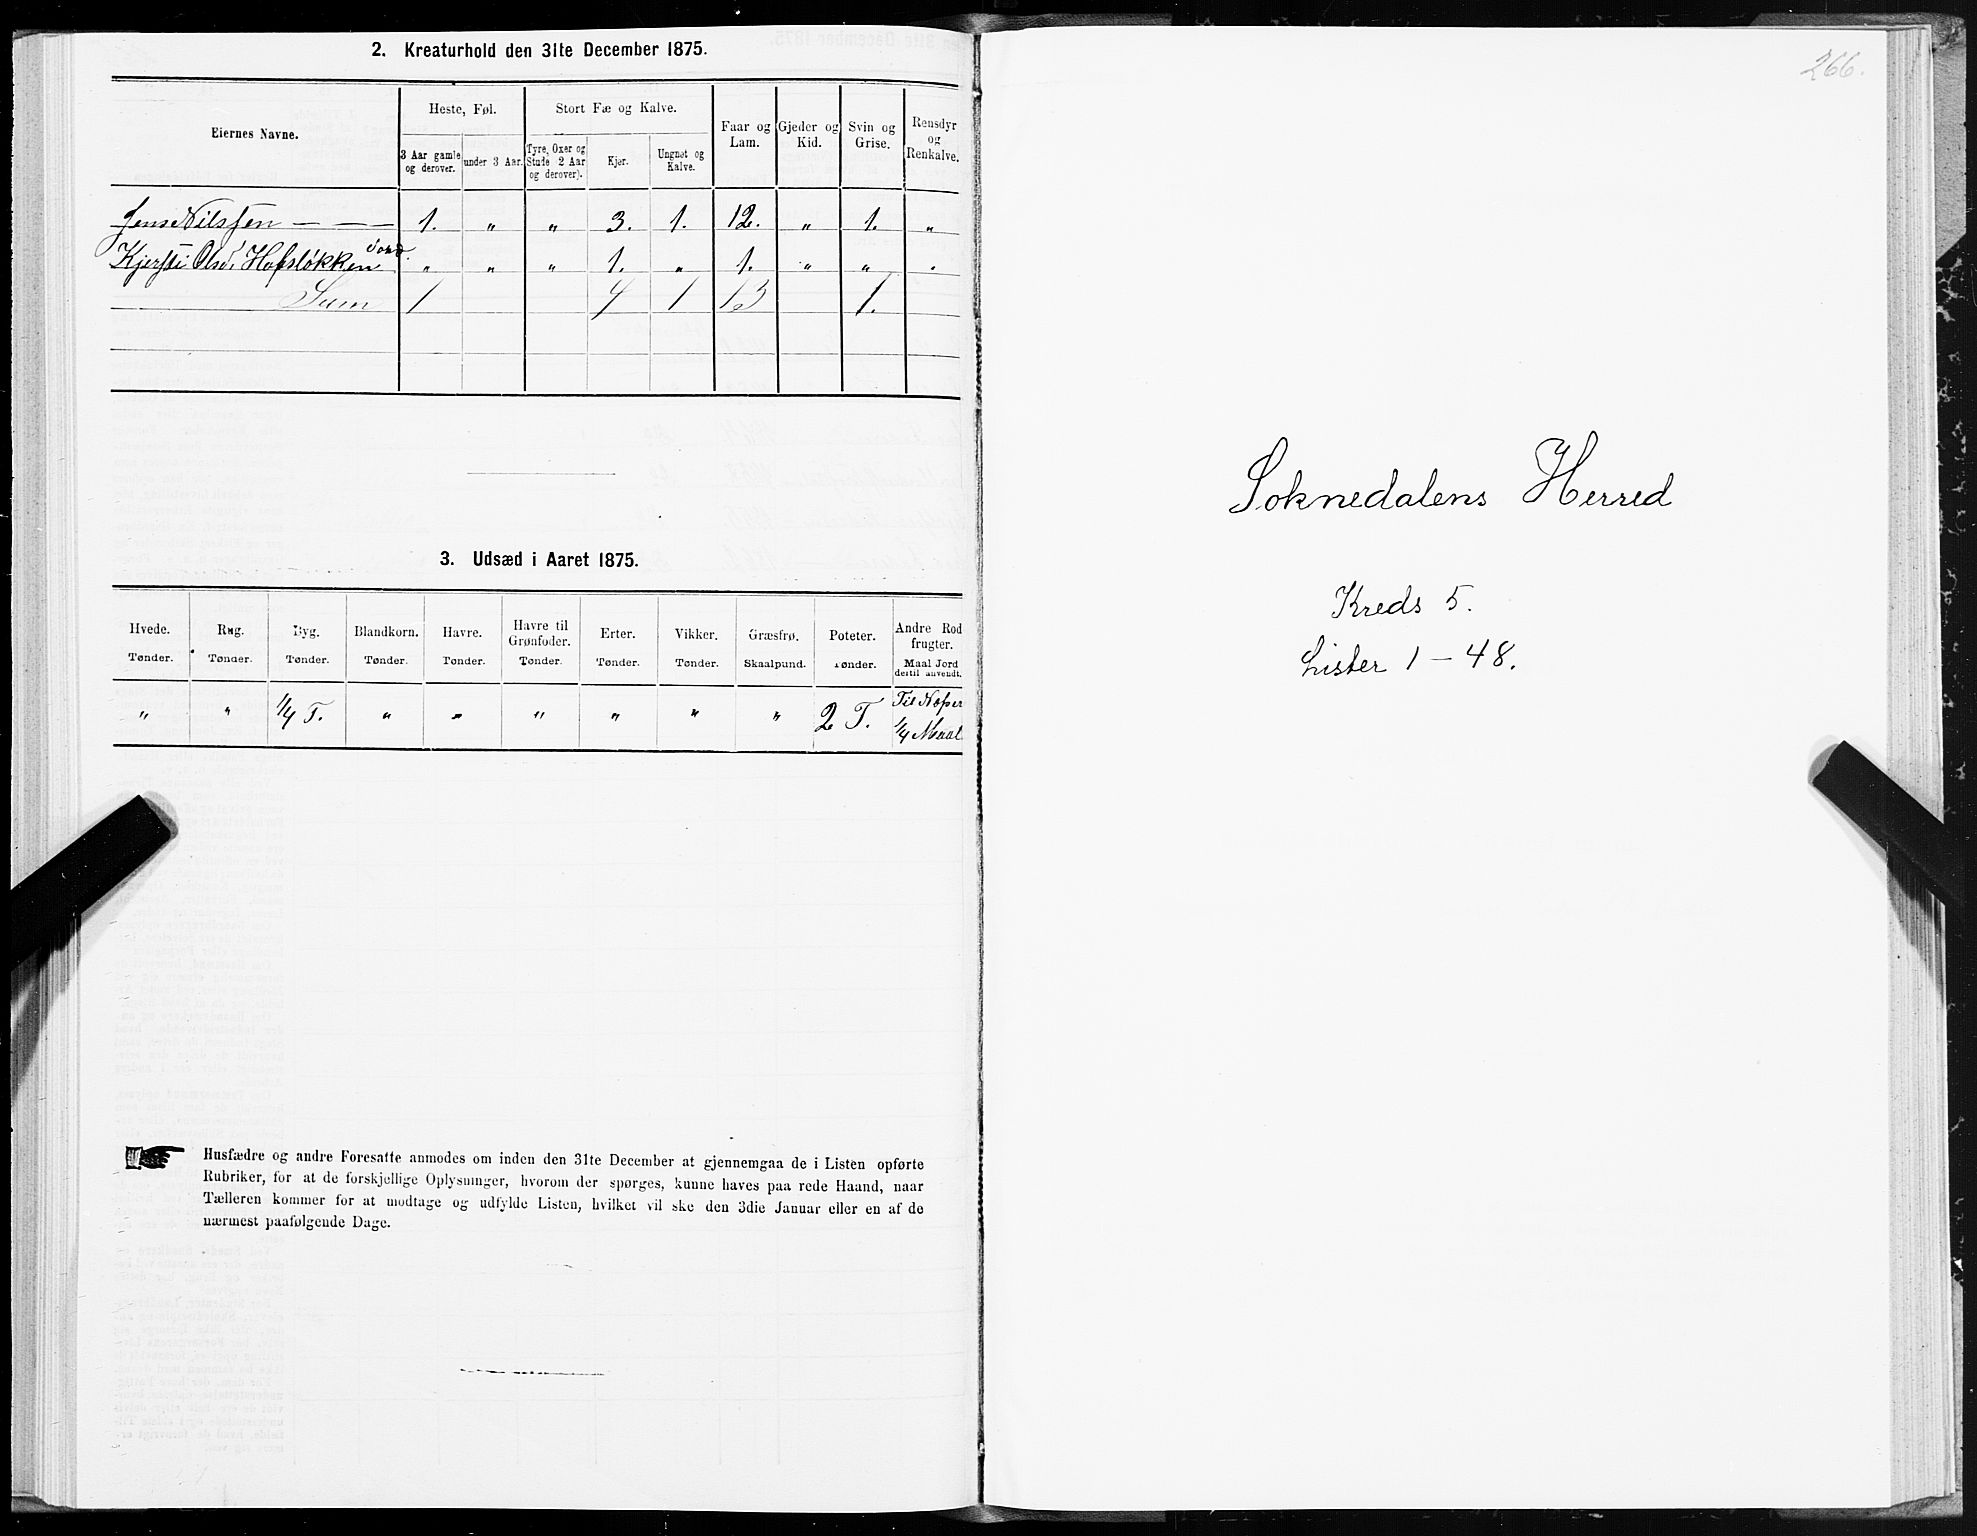 2. Kreaturhold den 31te December 1875.
Eiernes Navne.
Heste, Føl.
Stort Fæ og Kalve.
Faar og Lam.
Gjeder og Kid.
Svin og Grise.
Rensdyr og Renkalve.
3 Aar gamle og derover.
under 3 Aar.
Tyre, Oxer og Stude 2 Aar og derover).
Kjør.
Ungnøt og Kalve.
Jens Nilssen — — — 1. " " 3. 1. 12. " 1. "
Kjersti Olsd. Hofsløkken " " " 1. " 1. " " "
Sum 1 4 1 13 1.
3. Udsæd i Aaret 1875.
Hvede. Rug. Byg. Blandkorn. Havre. Havre til Grønfoder. Erter. Vikker. Græsfrø. Poteter. Andre Rodfrugter.
Tønder. Tønder. Tønder. Tønder. Tønder. Tønder. Tønder. Tønder. Skaalpund. Tønder. Maal Jord dertil anvendt.
" " 1/4 T. " " " " " " 2 T. Til Næper 1/4 Maal
Husfædre og andre Foresatte anmodes om inden den 31te December at gjennemgaa de i Listen opførte
Rubriker, for at de forskjellige Oplysninger, hvorom der spørges, kunne haves paa rede Haand, naar
Tælleren kommer for at modtage og udfylde Listen, hvilket vil ske den 3die Januar eller en af de
nærmest paafølgende Dage.
266.
Soknedalens Herred
Kreds 5.
Lister 1 – 48.